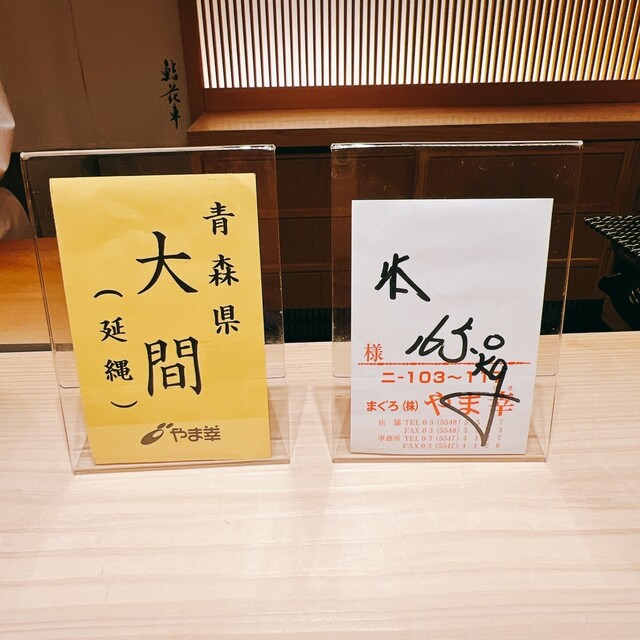 鮨花車
青森県
大間
(延縄)
やま幸
本
165.0
kg
様
ニ-103~11
まぐろ(株)やま幸
店舗 TEL 03(5548)
FAX 03(5548)
事務所 TEL 03(5547)
FAX 03(5547)